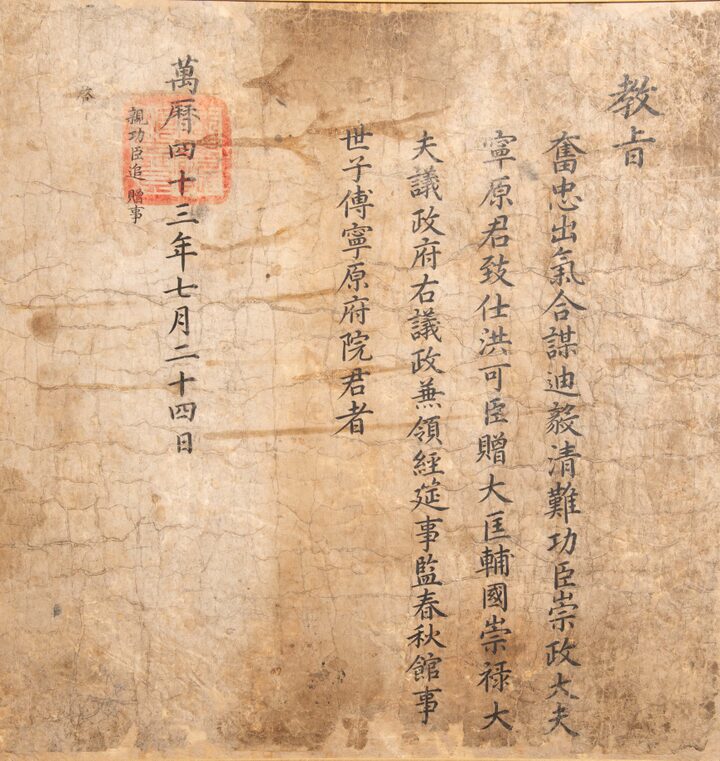 教旨
奮忠出氣合謀迪毅清難功臣崇政大夫
寧原君致仕洪可臣贈大匡輔國崇禄大
夫議政府右議政兼領經筵事監春秋館事
世子傅寧原府院君者
萬曆四十三年七月二十四日
親功臣追贈事